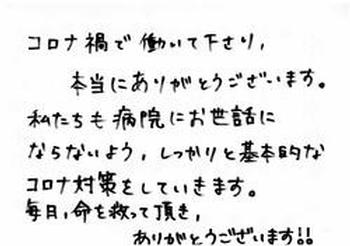 コロナ禍で働いて下さり,
本当にありがとうございます。
私たちも病院にお世話に
ならないよう,しっかりと基本的な
コロナ対策をしていきます。
毎日,命を救って頂き,
ありがとうございます!!